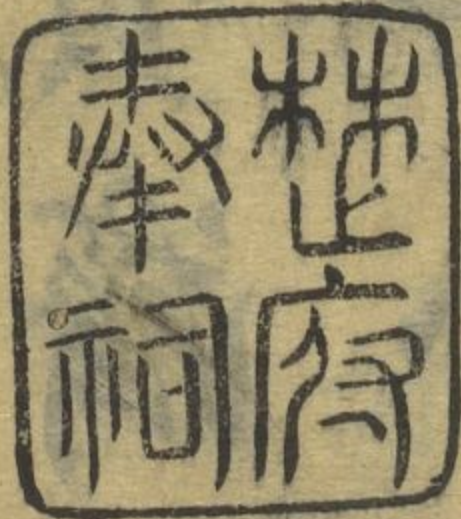 楚府
奉祠